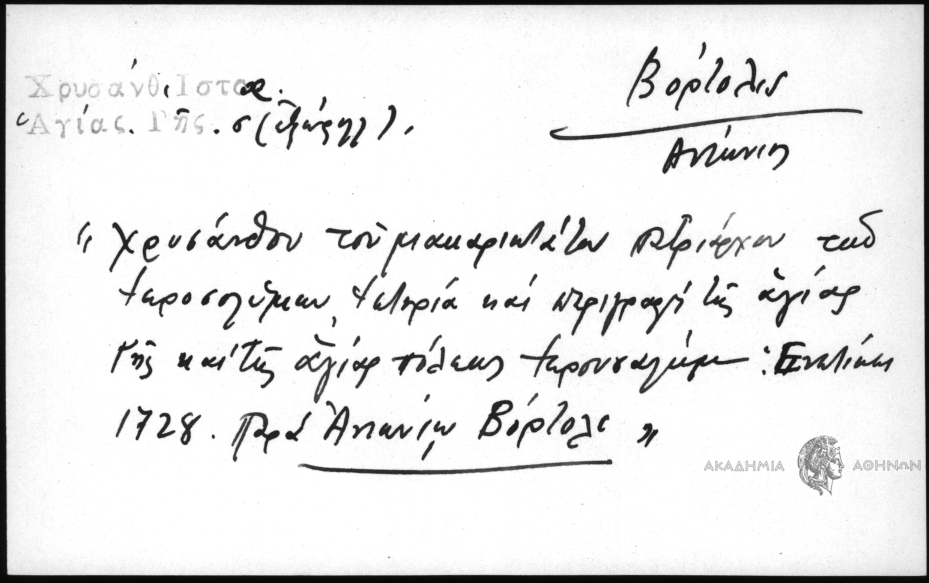 Χρυσάνθ. Ιστορ.
Ἁγίας. Γῆς. σ (ἐξώφυλ).
Βόρτολις
Ἀντώνιος
"Χρυσάνθου τοῦ μακαριωτάτου πατριάρχου τῶν
Ἱεροσολύμων Ἱστορία καὶ περιγραφὴ τῆς ἁγίας
Γῆς καὶ τῆς ἁγίας πόλεως Ἱερουσαλήμ. Ἐνετίησι
1728. παρὰ Ἀντωνίῳ Βόρτολι"
ΑΚΑΔΗΜΙΑ ΑΘΗΝΩΝ